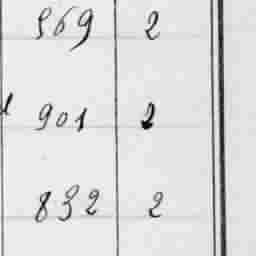 569 2
901 2
832 2